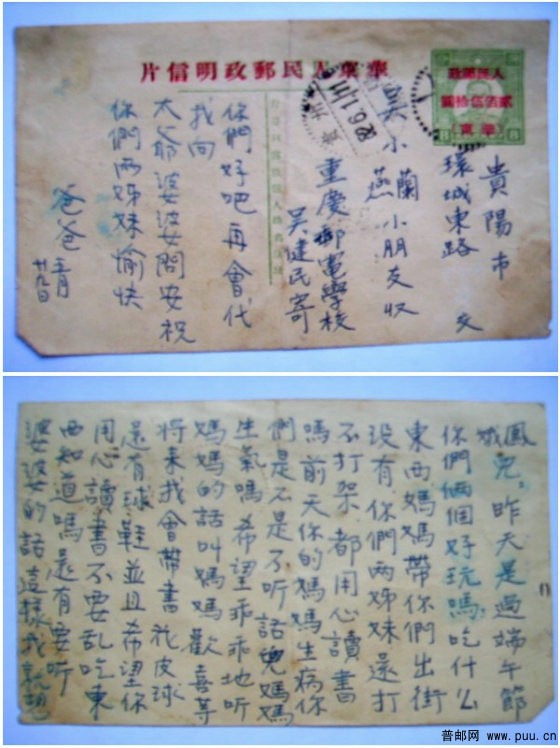 華東人民郵政明信片
人民郵政
貳佰伍拾圓
(華東)
8
8
貴陽市
環城東路
交
吳小蘭
燕
小朋友收
重慶郵電學校
吳健民寄
你們好吧再會代
我向
太爺婆婆問安祝
你們两姊妹愉快
爸爸
五月
廿九日
鳳兒：昨天是過端午節
你們倆個好玩嗎，吃什么
東西媽媽帶你們出街
没有你們两姊妹還打
不打架都用心讀書
嗎前天你的媽媽生病你
們是不是不听話
媽媽
生氣嗎希望乖乖地听
媽媽的話叫媽媽歡喜等
將來我會帶書花皮球
還有球鞋並且希望你
用心讀書不要乱吃東
西知道嗎還有要听
婆婆的話這樣我
普邮网 www.puu.cn